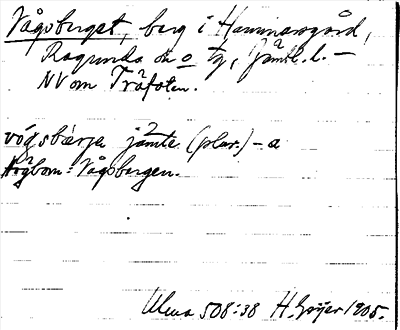 Vågsberget, berg i Hammarsgård,
Ragunda sn o tg, Jämtl. l. –
NV om Träfoten.
vógsbǽrja jämte (plur.) -a
Högbom: Vågsbergen.
Ulma 508:38 H. Geijer 1905.